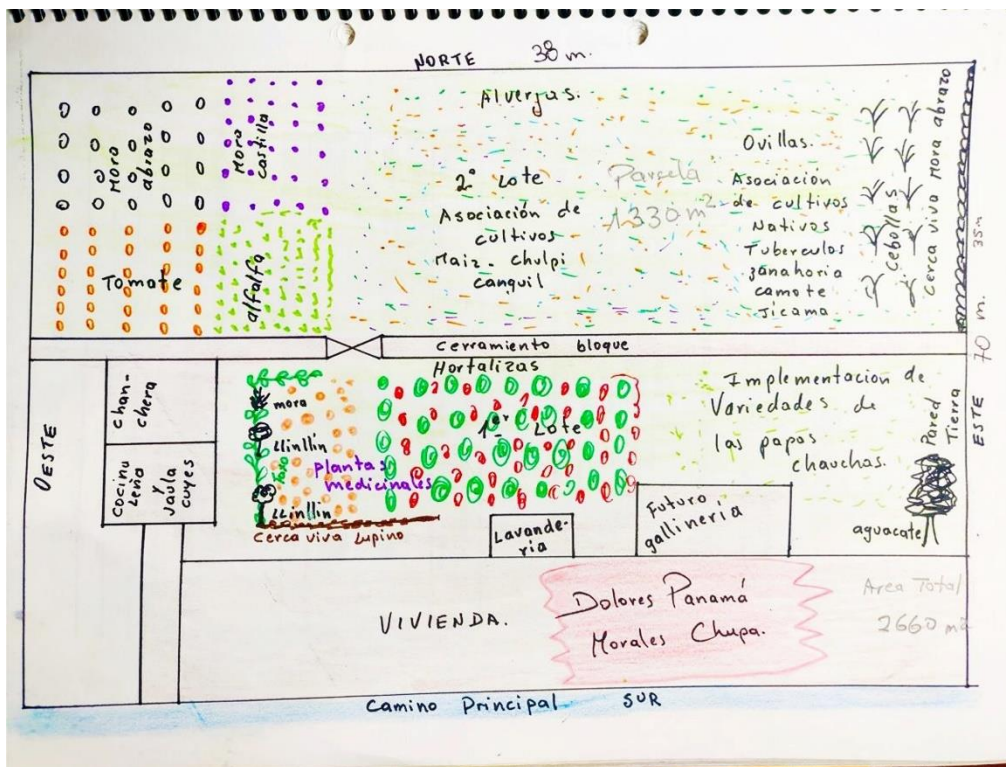 NORTE 38 m.
Mora
abrazo
Mora
castilla
Alverjas.
2º Lote
Asociación de
cultivos
Maiz - chulpi
canguil
Parcela
1330 m²
Ovillas.
Asociación
de cultivos
Nativos
Tuberculos
zanahoria
camote
jícama
Cebollas
Cerca viva Mora abrazo
35 m
Tomate
alfalfa
cerramiento bloque
70 m.
ESTE
OESTE
Chan-
chera
Cocina
Leña
y
Javla
cuyes
Hortalizas
mora
Llinllin
Taxo
Llinllin
plantas
medicinales
1er Lote
Cerca viva Lupino
Implementación de
Variedades de
las papas
chauchas.
Pared
Tierra
aguacate
Lavande-
ria
Futuro
gallineria
VIVIENDA.
Dolores Panamá
Morales Chupa.
Area Total
2660 m²
Camino Principal SUR